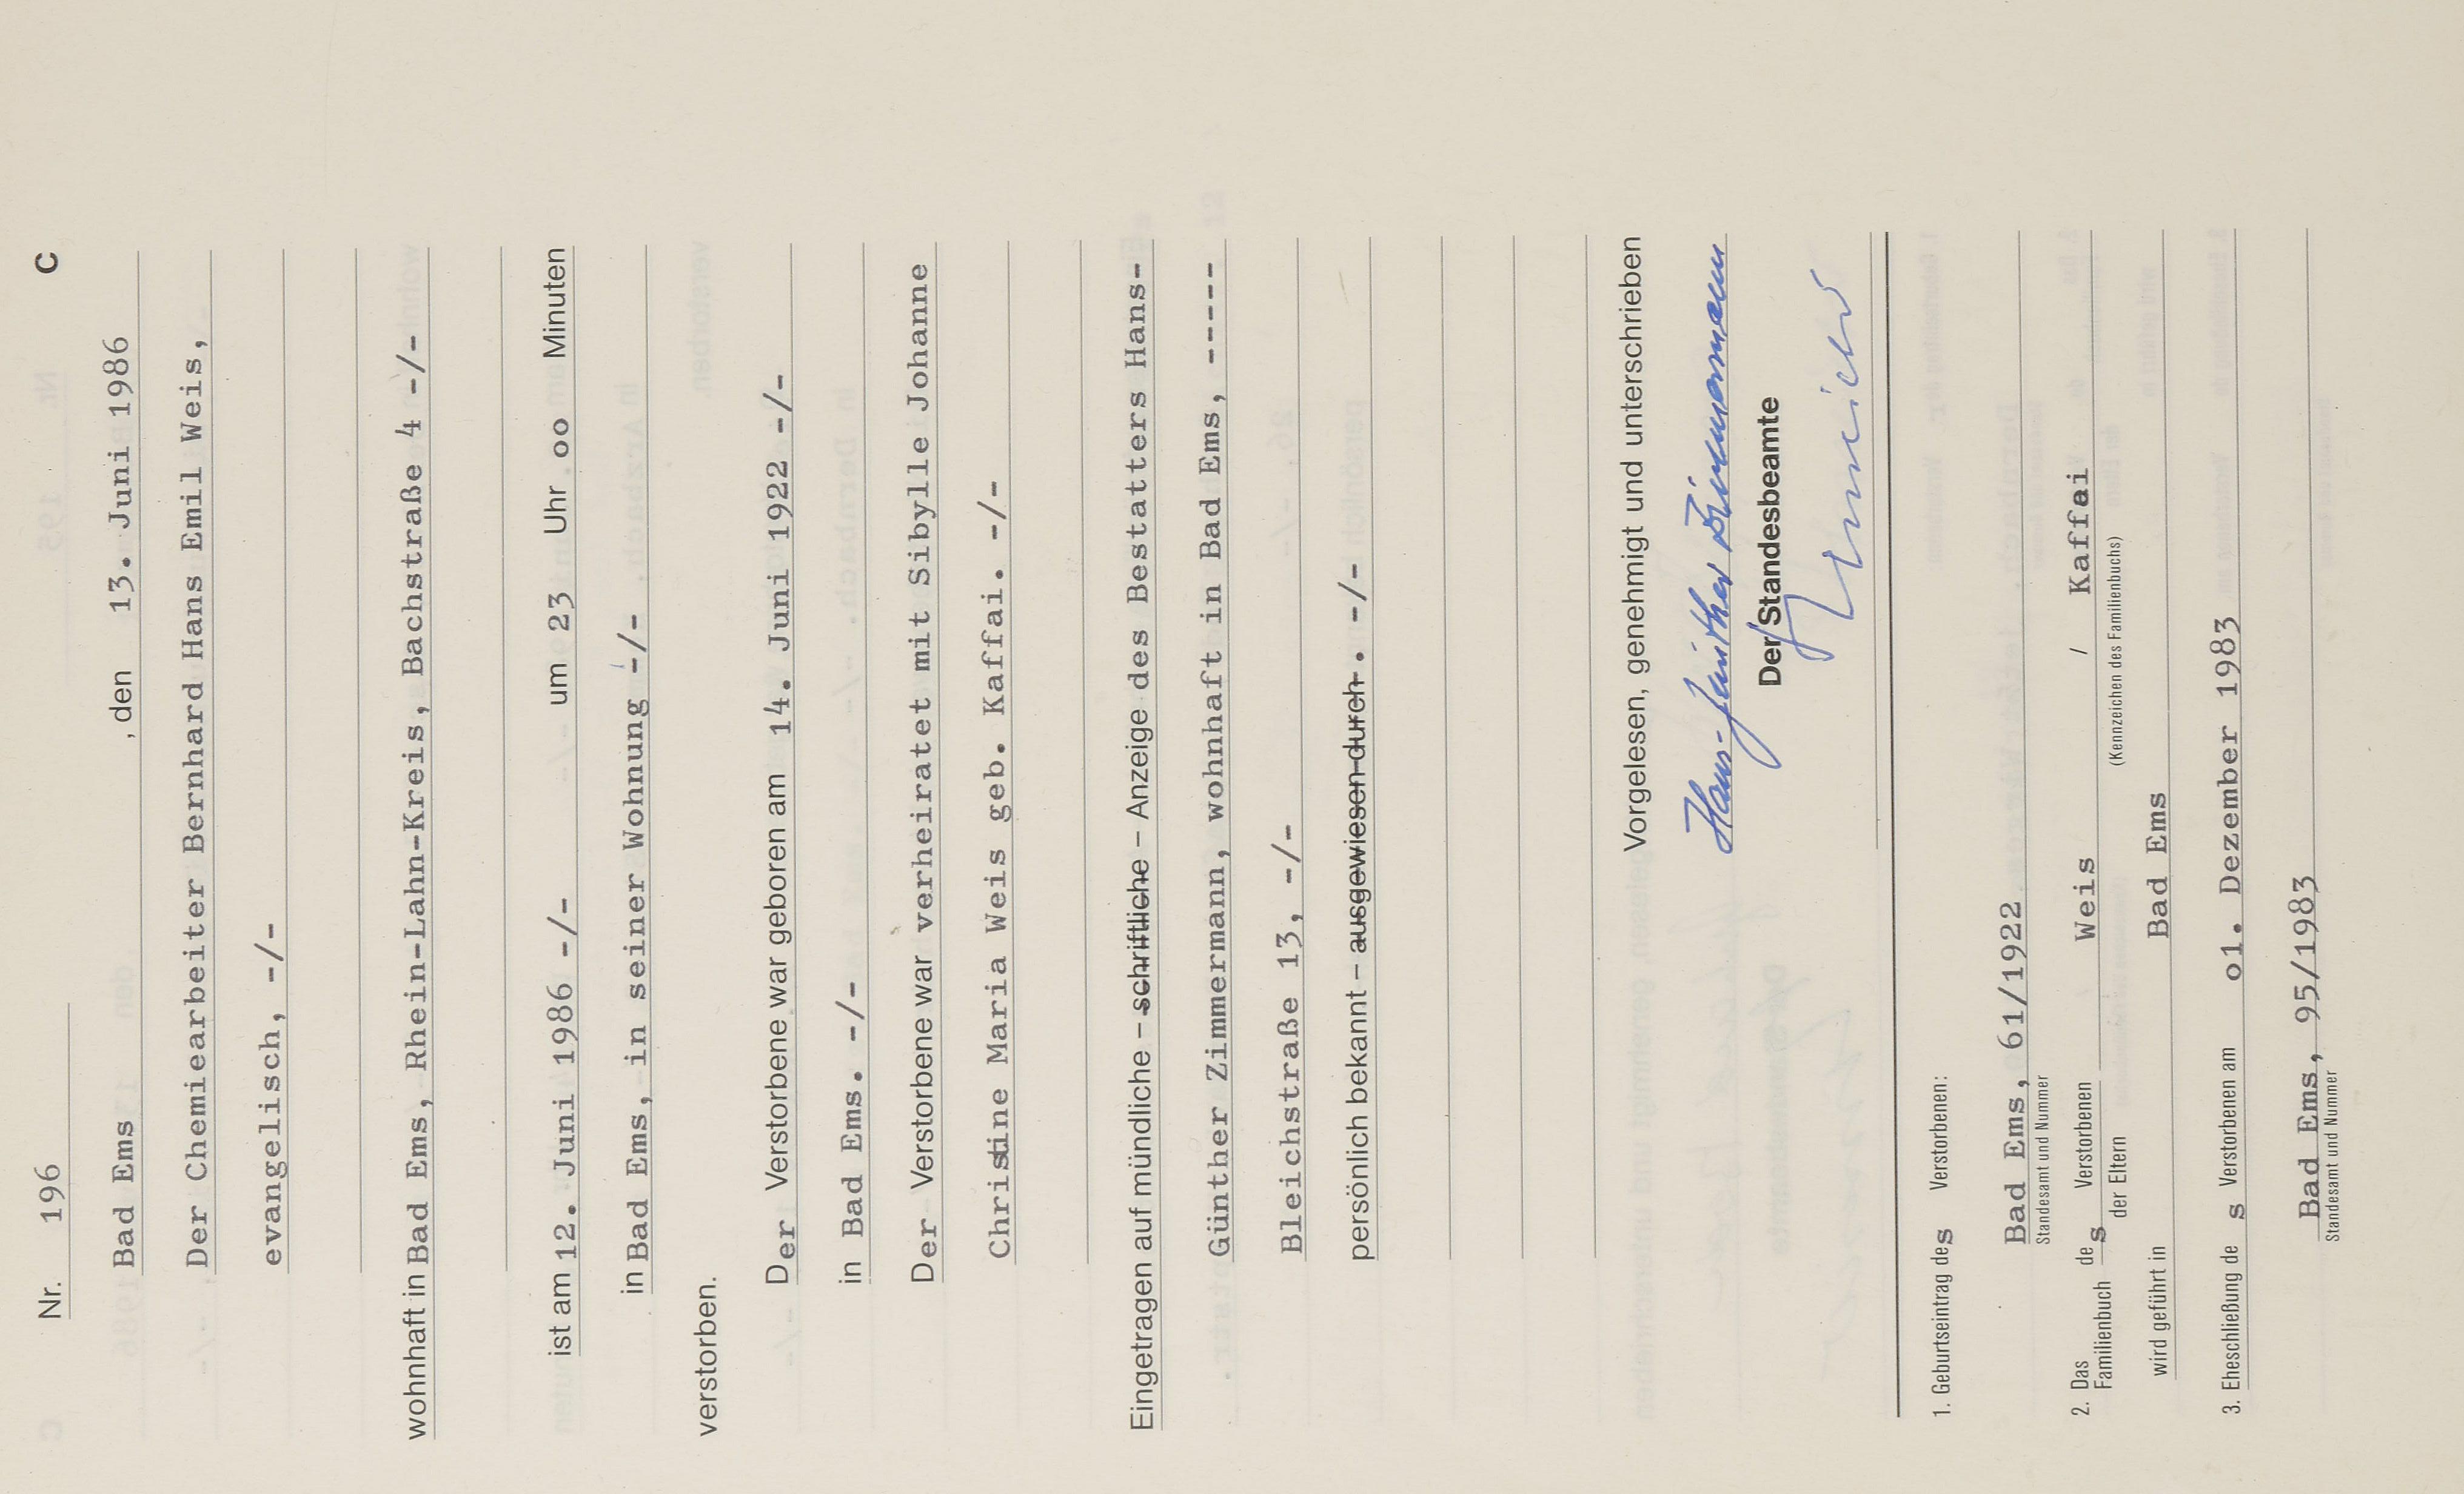 Nr. 196 C
Bad Ems , den 13. Juni 1986
Der Chemiearbeiter Bernhard Hans Emil Weis,
evangelisch, -/-
wohnhaft in Bad Ems, Rhein-Lahn-Kreis, Bachstraße 4 -/-
ist am 12. Juni 1986 -/- um 23 Uhr oo Minuten
in Bad Ems, in seiner Wohnung -/-
verstorben.
Der Verstorbene war geboren am 14. Juni 1922 -/-
in Bad Ems. -/-
Der Verstorbene war verheiratet mit Sibylle Johanne
Christine Maria Weis geb. Kaffai. -/-
Eingetragen auf mündliche – schriftliche – Anzeige des Bestatters Hans-
Günther Zimmermann, wohnhaft in Bad Ems, -----
Bleichstraße 13, -/-
persönlich bekannt – ausgewiesen durch . -/-
Vorgelesen, genehmigt und unterschrieben
Hans-Günther Zimmermann
Der Standesbeamte
1. Geburtseintrag des Verstorbenen:
Bad Ems, 61/1922
Standesamt und Nummer
2. Das Familienbuch des Verstorbenen Weis / Kaffai
der Eltern (Kennzeichen des Familienbuchs)
wird geführt in Bad Ems
3. Eheschließung des Verstorbenen am o1. Dezember 1983
Bad Ems, 95/1983
Standesamt und Nummer